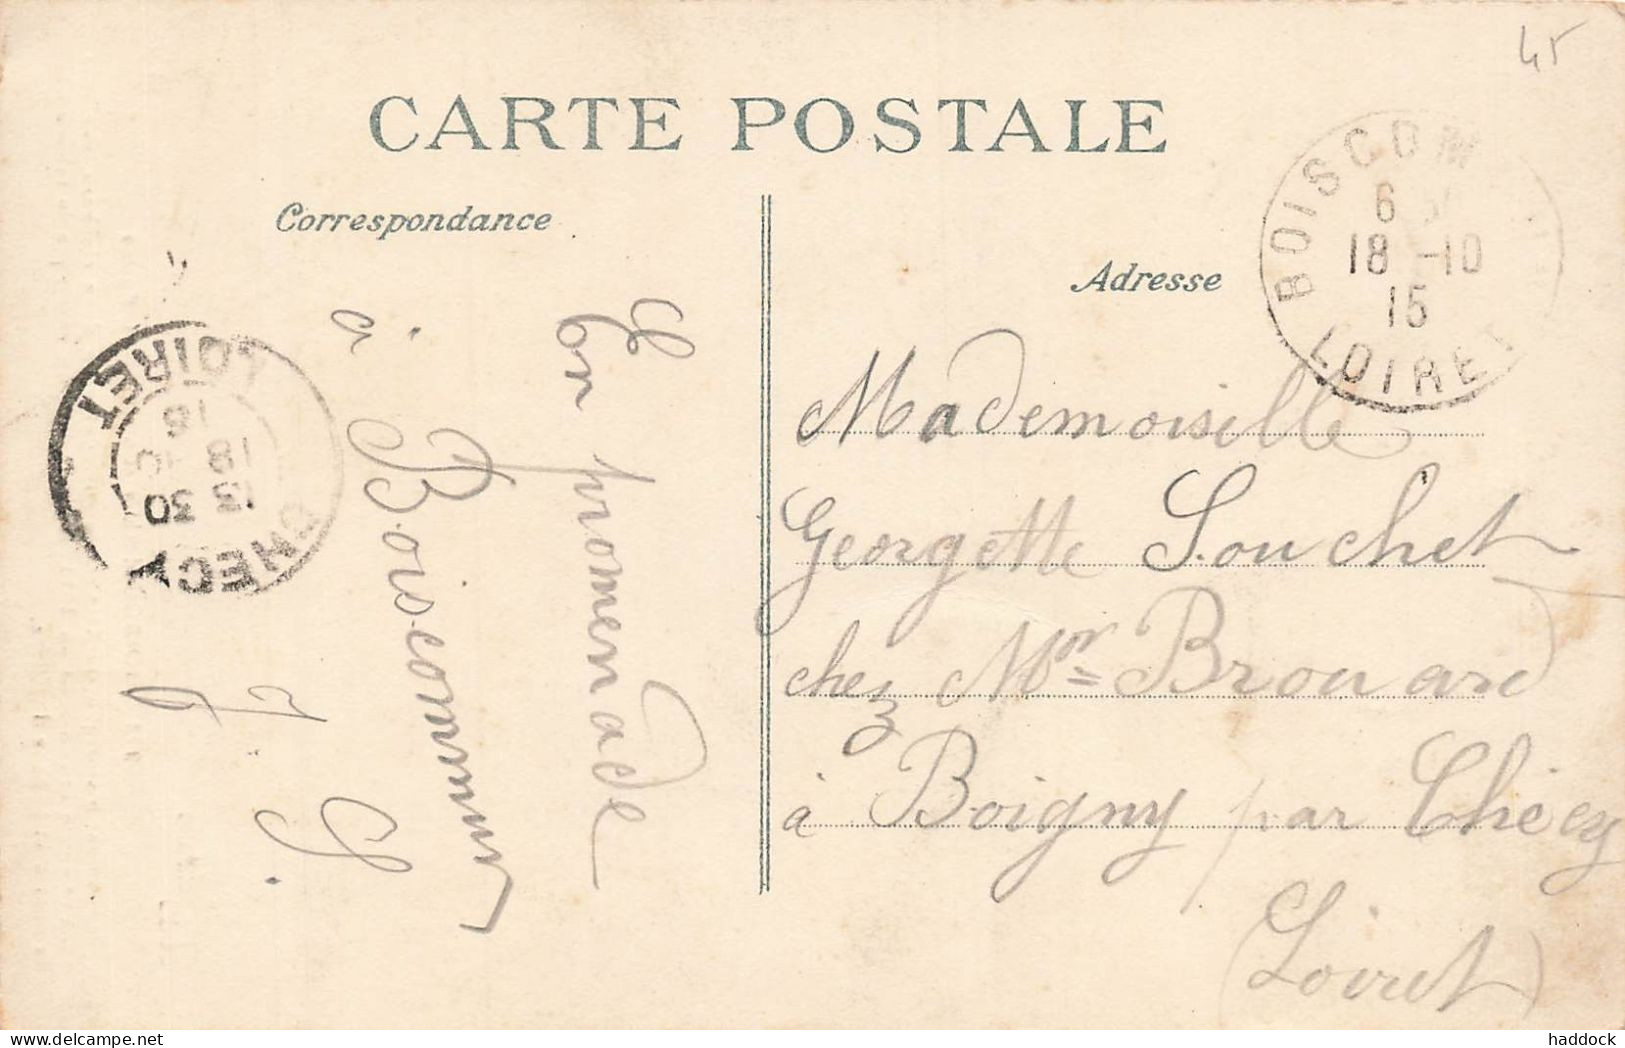 45
CARTE POSTALE
Correspondance
Adresse
BOISCOM
6
18 -10
15
LOIRET
En promenade
à Boiscommun
CHECY
13 30
18 10
15
LOIRET
Mademoiselle
Georgette Souchet
chez Mr Brouard
à Boigny par Chécy
(Loiret)
haddock